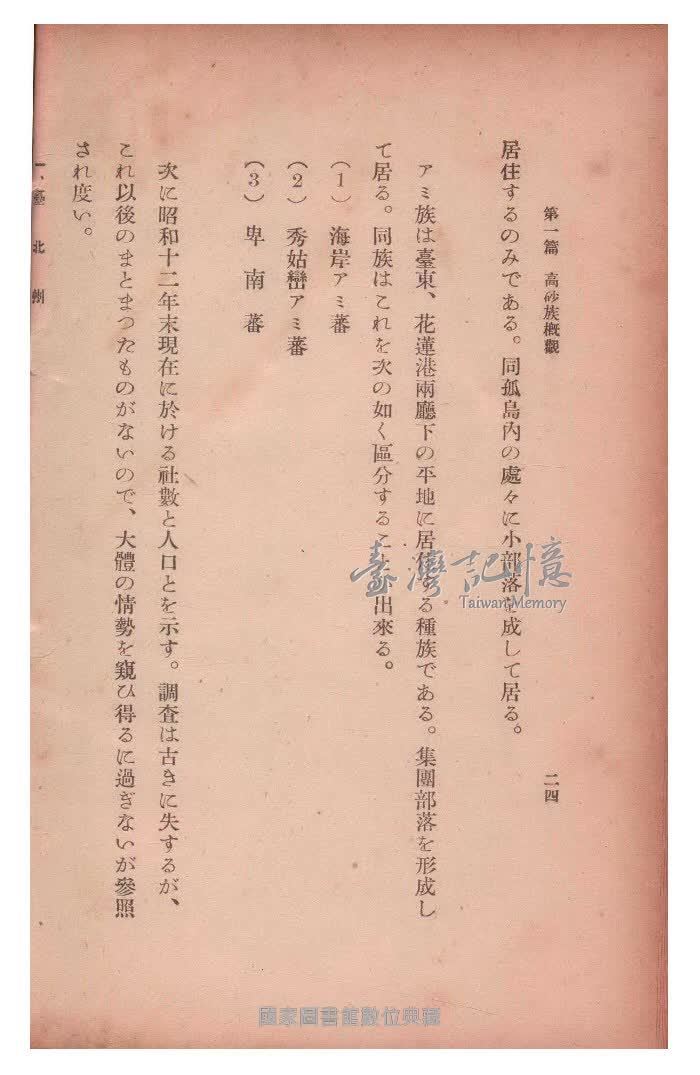 第一篇　高砂族概觀
二四
居住するのみである。同孤島內の處々に小部落を成して居る。
アミ族は臺東、花蓮港兩廳下の平地に居住する種族である。集團部落を形成し
て居る。同族はこれを次の如く區分すること出來る。
(1)　海岸アミ蕃
(2)　秀姑巒アミ蕃
(3)　卑南蕃
次に昭和十二年末現在に於ける社數と人口とを示す。調査は古きに失するが、
これ以後のまとまつたものがないので、大體の情勢を窺ひ得るに過ぎないが參照
され度い。
一、臺北州
臺灣記憶
Taiwan Memory
國家圖書館數位典藏